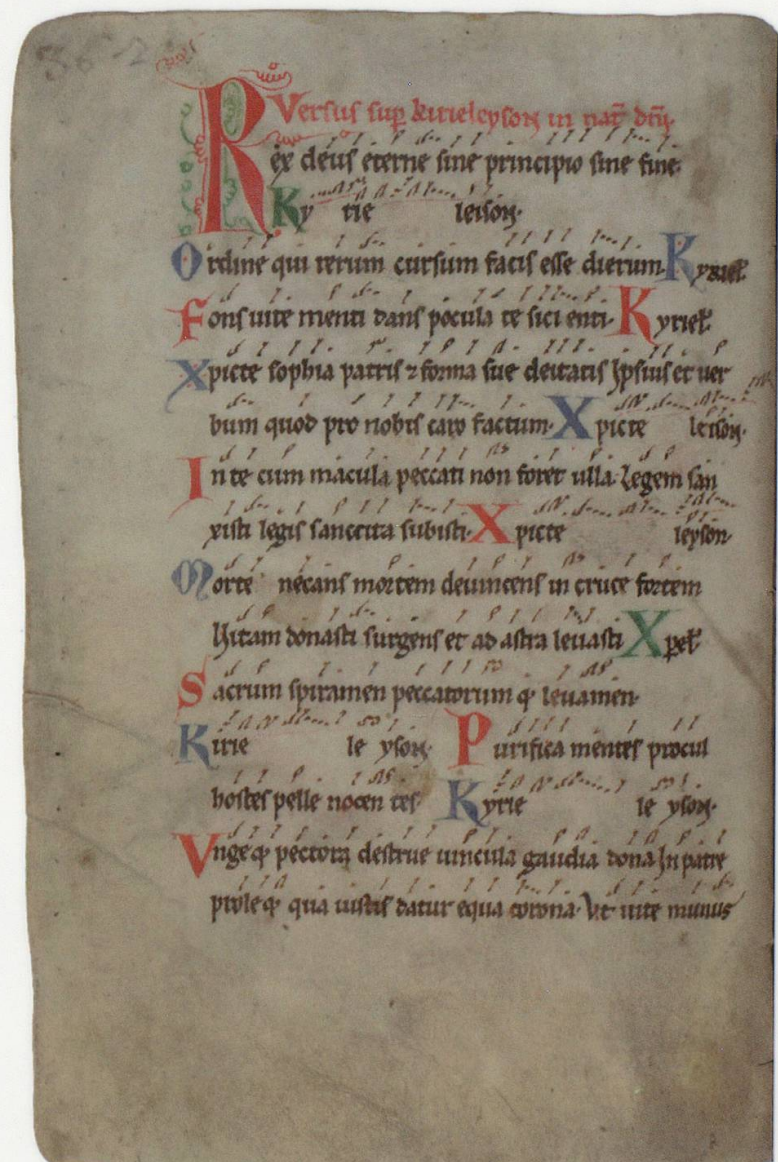 Versus sup kirieleyson in nat dni.
Rex deus eterne sine principio sine fine.
Ky rie leison.
Ordine qui rerum cursum facis esse dierum. Kyriel.
Fons uite menti dans pocula te sici enti. Kyriel.
Xpicte sophia patris ⁊ forma sue deitatis Ipsius et uer
bum quod pro nobis caro factum. Xpicte leison.
In te cum macula peccati non foret ulla. Legem san
xisti legis sanccita subisti. Xpicte leyson.
Morte necans mortem deuincens in cruce fortem
Uitam donasti surgens et ad astra leuasti Xpel.
Sacrum spiramen peccatorum q leuamen.
Kirie le yson. Purifica mentes procul
hostes pelle nocen tes. Kyrie le yson.
Vnge q pectora destrue uincula gaudia dona In patre
prole q qua iustis datur equa corona. Vt uite munus